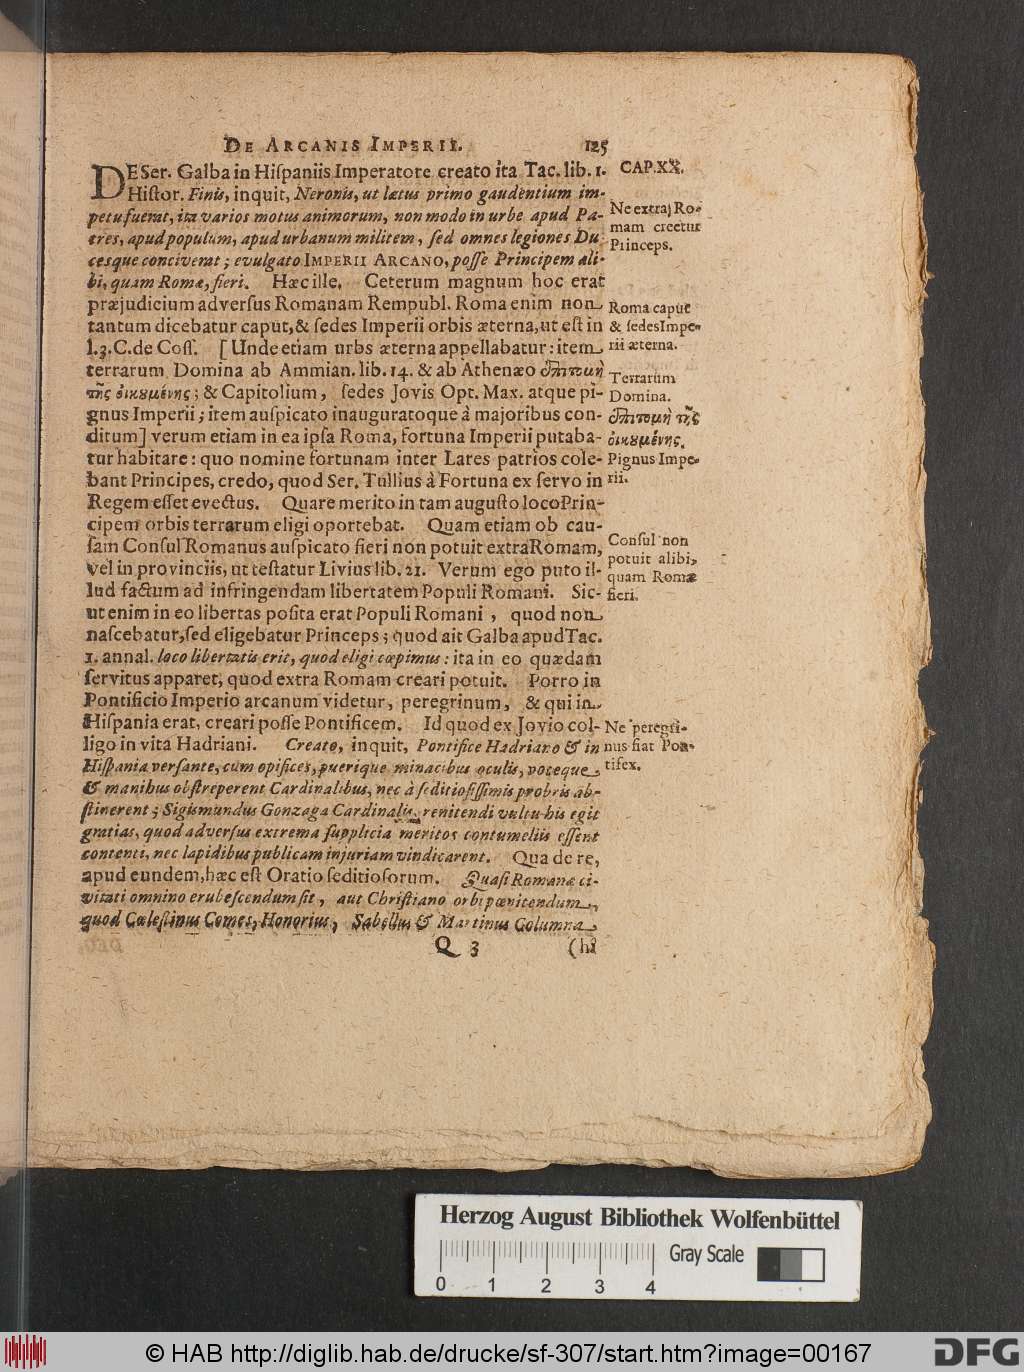 DE ARCANIS IMPERII. 125
DE Ser. Galba in Hiſpaniis Imperatore creato ita Tac. lib. 1.
Hiſtor. Finis, inquit, Neronis, ut lætus primo gaudentium im-
petu fuerat, ita varios motus animorum, non modo in urbe apud Pa-
tres, apud populum, apud urbanum militem, ſed omnes legiones Du-
cesque conciverat; evulgato IMPERII ARCANO, poſſe Principem ali-
bi, quam Romæ, fieri. Hæc ille. Ceterum magnum hoc erat
præjudicium adverſus Romanam Rempubl. Roma enim non
tantum dicebatur caput, & ſedes Imperii orbis æterna, ut eſt in
l. 3. C. de Coſſ. [Unde etiam urbs æterna appellabatur: item
terrarum Domina ab Ammian. lib. 14. & ab Athenæo ἐπιτομὴ
τῆς οἰκουμένης; & Capitolium, ſedes Jovis Opt. Max. atque pi-
gnus Imperii; item auſpicato inauguratoque à majoribus con-
ditum] verum etiam in ea ipſa Roma, fortuna Imperii putaba-
tur habitare: quo nomine fortunam inter Lares patrios cole-
bant Principes, credo, quod Ser. Tullius à Fortuna ex ſervo in
Regem eſſet evectus. Quare merito in tam auguſto loco Prin-
cipem orbis terrarum eligi oportebat. Quam etiam ob cau-
ſam Conſul Romanus auſpicato fieri non potuit extra Romam,
vel in provinciis, ut teſtatur Livius lib. 21. Verum ego puto il-
lud factum ad infringendam libertatem Populi Romani. Sic-
ut enim in eo libertas poſita erat Populi Romani, quod non
naſcebatur, ſed eligebatur Princeps; quod ait Galba apud Tac.
1. annal. loco libertatis erit, quod eligi cœpimus: ita in eo quædam
ſervitus apparet, quod extra Romam creari potuit. Porro in
Pontificio Imperio arcanum videtur, peregrinum, & qui in
Hiſpania erat, creari poſſe Pontificem. Id quod ex Jovio col-
ligo in vita Hadriani. Creato, inquit, Pontifice Hadriano & in
Hiſpania verſante, cum opifices, puerique minacibus oculis, voceque,
& manibus obſtreperent Cardinalibus, nec à ſeditioſiſſimis probris ab-
ſtinerent; Sigismundus Gonzaga Cardinalis, renitendi vultu his egit
gratias, quod adverſus extrema ſupplicia meritos contumeliis eſſent
contenti, nec lapidibus publicam injuriam vindicarent. Qua de re,
apud eundem, hæc eſt Oratio ſeditioſorum. Quaſi Romanæ ci-
vitati omnino erubeſcendum ſit, aut Chriſtiano orbi pœnitendum,
quod Cœleſtinus Comes, Honorius, Sabellus & Martinus Columna,
Q 3 (hi
CAP. XX.
Ne extra Ro-
mam creetur
Princeps.
Roma caput
& ſedes Impe-
rii æterna.
Terrarum
Domina.
ἐπιτομὴ τῆς
οἰκουμένης.
Pignus Impe-
rii.
Conſul non
potuit alibi,
quam Romæ
fieri.
Ne peregri-
nus fiat Pon-
tifex.
Herzog August Bibliothek Wolfenbüttel
0 1 2 3 4
Gray Scale
© HAB http://diglib.hab.de/drucke/sf-307/start.htm?image=00167
DFG